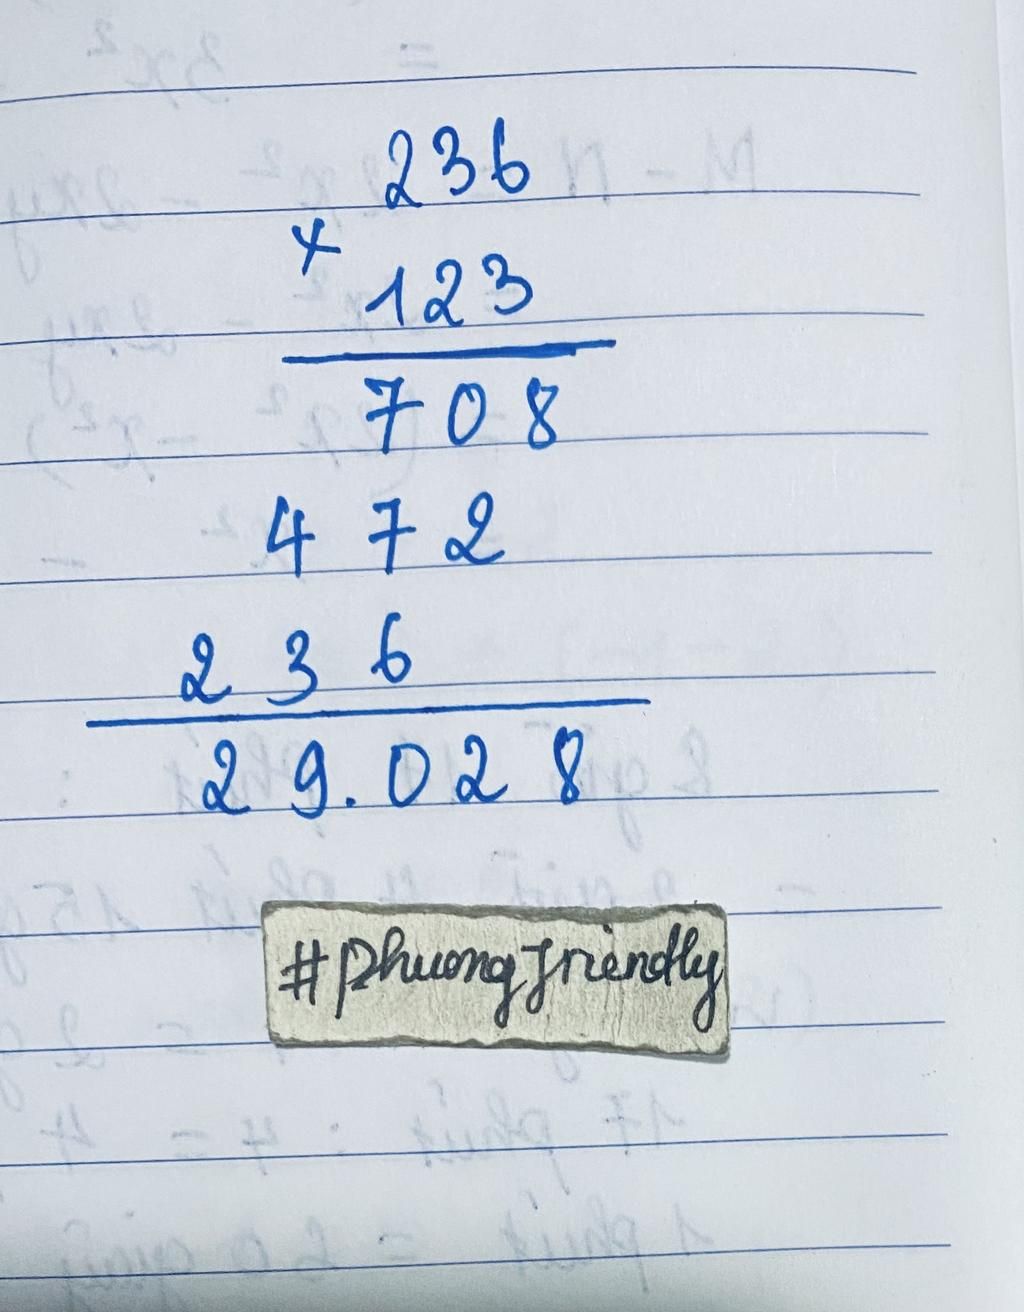 236
×
123
708
472
236
29.028
#phuongfriendly